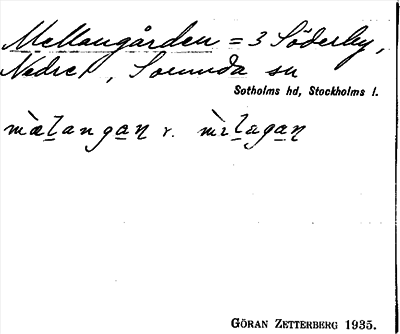 Mellangården = 3 Söderby,
Nedre, Sorunda sn
Sotholms hd, Stockholms l.
r.
GÖRAN ZETTERBERG 1935.